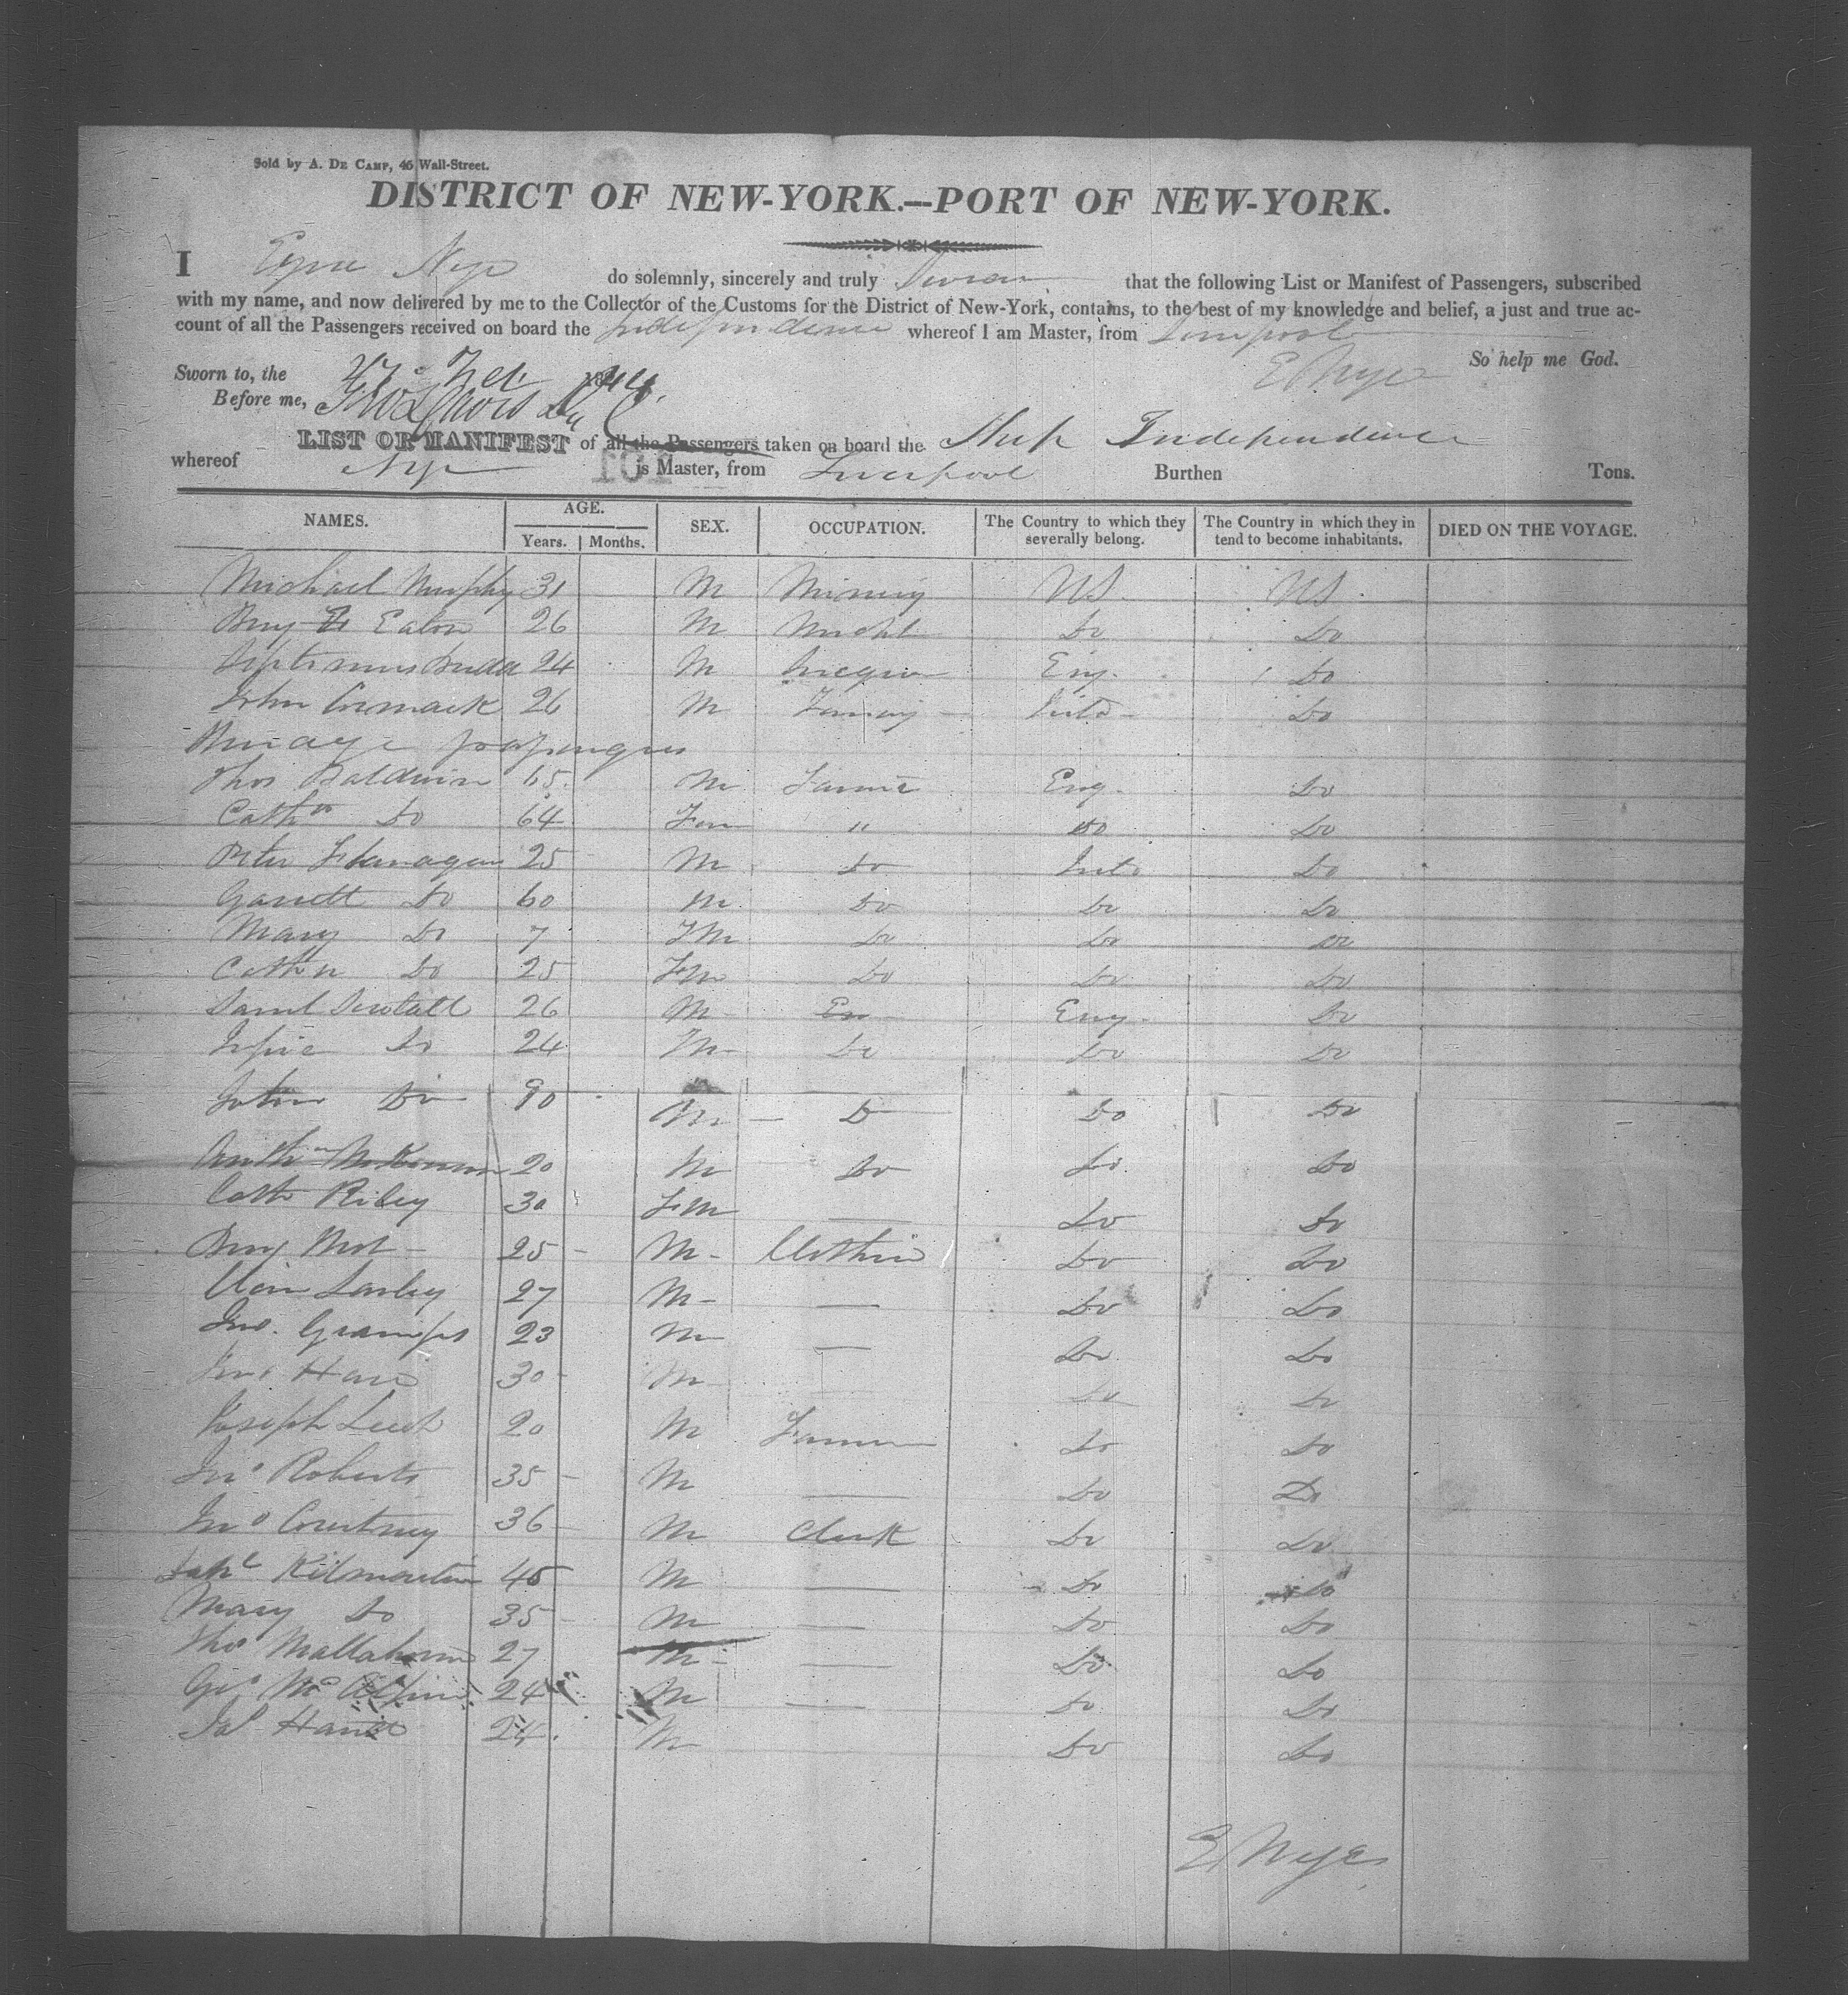 Sold by A. DE CAMP, 46 Wall-Street.
DISTRICT OF NEW-YORK.—PORT OF NEW-YORK.
I Ezra Nye do solemnly, sincerely and truly Swear that the following List or Manifest of Passengers, subscribed
with my name, and now delivered by me to the Collector of the Customs for the District of New-York, contains, to the best of my knowledge and belief, a just and true ac-
count of all the Passengers received on board the Independence whereof I am Master, from Liverpool
So help me God.
Sworn to, the 1844 E Nye
Before me,
LIST OR MANIFEST of all the Passengers taken on board the Ship Independence
whereof Nye is Master, from Liverpool Burthen Tons.
101
NAMES. AGE. SEX. OCCUPATION. The Country to which they severally belong. The Country in which they intend to become inhabitants. DIED ON THE VOYAGE.
Years. Months.
Michael Murphy 31 M US US
Benj Eaton 26 M Do Do
Septimus 24 M Eng. Do
John Cormack 26 M Do
Thos Baldwin 65 M Farmer Eng. Do
Cathn Do 64 Fem " Do Do
Peter Flanagan 25 M Do Do
Garrett Do 60 M Do Do Do
Mary Do 7 FM Do Do Do
Cathn Do 25 FM Do Do Do
Saml 26 M Eng. Do
Do 24 M Do Do Do
John Do 90 M Do Do Do
20 M Do Do Do
Cath Riley 30 FM — Do Do
Benj 25 M Do Do
27 M — Do Do
Jno. 23 M — Do Do
Jno Hare 30 M Do Do
Joseph 20 M Farmer Do Do
Jno Roberts 35 M — Do Do
Jno Courtney 36 M Clerk Do Do
Kilmartin 45 M — Do Do
Mary Do 35 M — Do Do
Thos 27 M — Do Do
Geo McAlpin 24 M — Do Do
Jas 24 M Do Do
E Nye